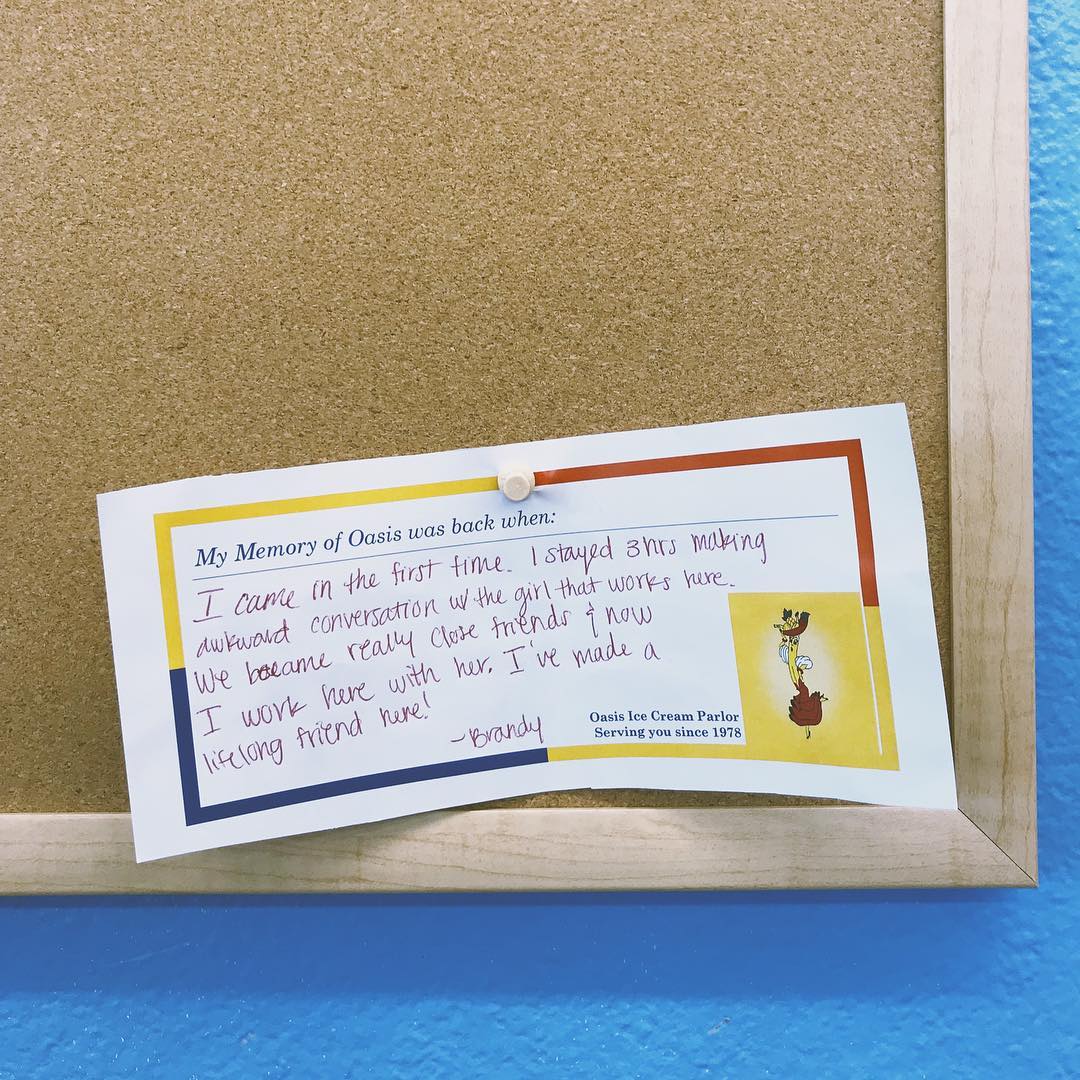 My Memory of Oasis was back when:
I came in the first time. I stayed 3hrs making
awkward conversation w/ the girl that works here.
We became really close friends & now
I work here with her. I've made a
lifelong friend here!
~Brandy
Oasis Ice Cream Parlor
Serving you since 1978